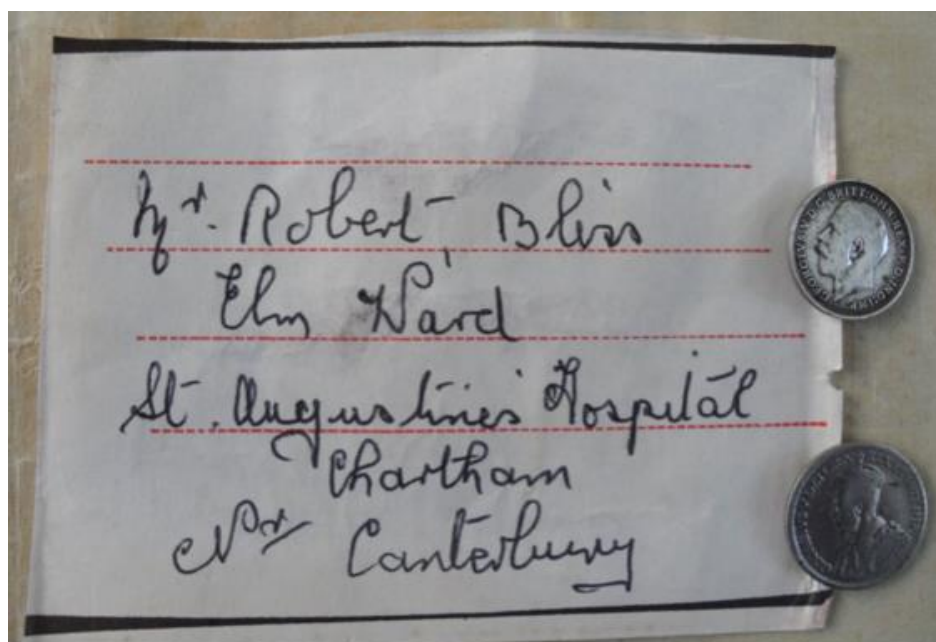 Mr. Robert Bliss
Elm Ward
St. Augustine's Hospital
Chartham
Nr Canterbury